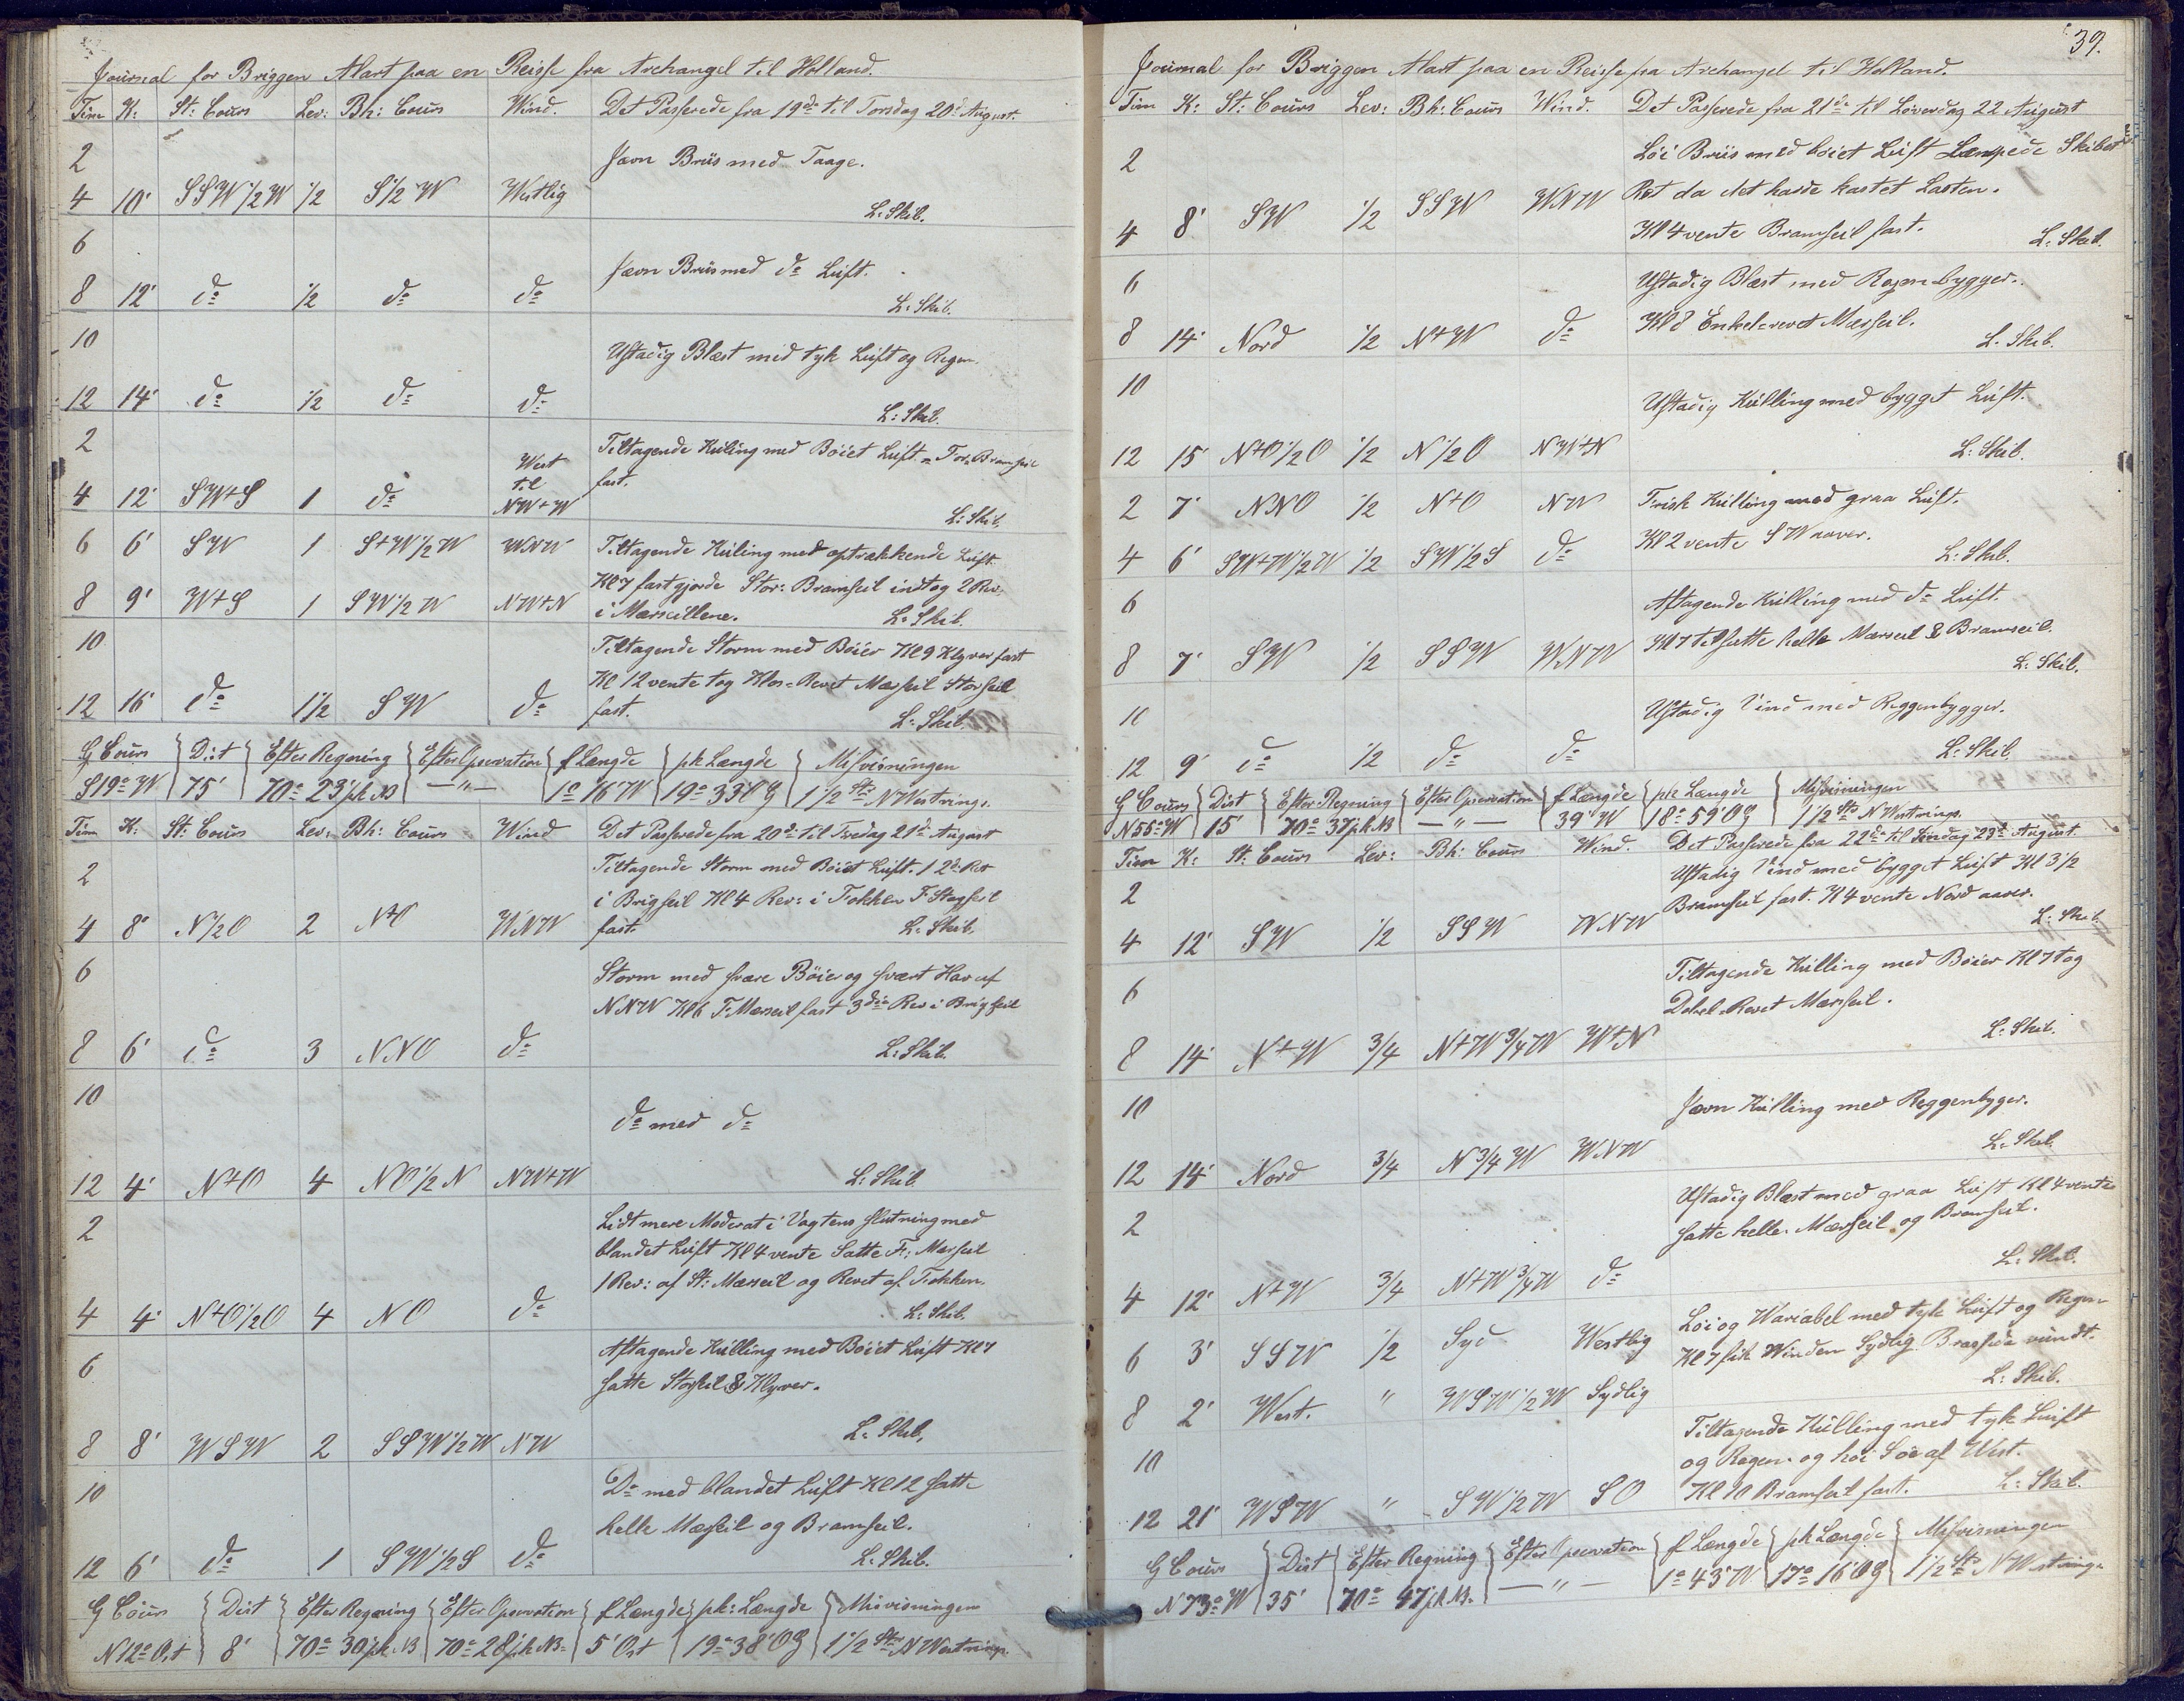 Journal for Briggen Alart paa en Reisse fra Archangel til Holland.
Tim K: St: Cours Lev: Bh: Cours Wind. Det Passerede fra 19de til Torsdag 20d August.
2 Jævn Briis med Taage.
4 10' SSW 1/2 W 1/2 S 1/2 W Westlig L: Skib.
6 Jævn Briis med do Luft.
8 12' do 1/2 do do L: Skib.
10 Ustadig Blæst med tyk Luft og Regn.
12 14' do 1/2 do do L: Skib.
2 Tiltagende Kuling med Böiet Luft = For-Bramseil
West til
4 12' SW+S 1 do NW+W fast. L: Skib.
6 6' SW 1 S+W 1/2 W WNW Tiltagende Kuling med optrækkende Luft.
Kl 7 fastgjorde Stor: Bramseil indtog 2 Rev.
8 9' W+S 1 SW 1/2 W NW+N i Mærseillene. L: Skib.
10 Tiltagende Storm med Böier Kl 9 Klyver fast
Kl 12 vente tog Klos-Revet Mærseil Storseil
12 16' do 1 1/2 SW do fast. L: Skib.
G Cours Dist Efter Regning Efter Opservation f Længde pk Længde Misvisningen
S 19° W 75' 70° 23' pk NB — " — 1° 16' W 19° 33' OG 1 1/2 St. N Westring.
Tim K: St: Cours Lev: Bh: Cours Wind Det Passerede fra 20d til Fredag 21d August
2 Tiltagende Storm med Böiet Luft. 1 2d Rev
i Brigseil Kl 4 Rev: i Fokken F Stagseil
4 8' N 1/2 O 2 N+O WNW fast. L: Skib.
6 Storm med svære Böie og svært Hav af
NNW Kl 6 F. Mærseil fast 3die Rev i Brigseil
8 6' do 3 NNO do L: Skib.
10 do med do
12 4' N+O 4 NO 1/2 N NW+W L: Skib.
2 Lidt mere Moderat i Vagtens slutning med
blandet Luft Kl 4 vente Satte F: Mærseil
1 Rev: af St: Mærseil og Revet af Fokken.
4 4' N+O 1/2 O 4 NO do L: Skib.
6 Aftagende Kulling med Böiet Luft Kl 7
satte Storseil & Klyver.
8 8' WSW 2 SSW 1/2 W NW L: Skib.
10 Do med blandet Luft Kl 12 satte
helle Mærseil og Bramseil.
12 6' do 1 SW 1/2 S do L: Skib.
G Cours Dist Efter Regning Efter Opservation f Længde pk: Længde Misvisningen
N 12° Ost 8' 70° 30' pk NB 70° 28' pk NB 5' Ost 19° 38' OG 1 1/2 St. N Westring.
39.
Journal for Briggen Alart paa en Reisse fra Archangel til Holland.
Tim K: St: Cours Lev: Bh: Cours Wind. Det Passerede fra 21de til Löverdag 22 August
2 Löi Briis med böiet Luft Læmpede Skibet
Ret da det havde kastet Lasten.
4 8' SW 1/2 SSW WNW Kl 4 vente Bramseil fast. L: Skib.
6 Ustadig Blæst med Regnbygger.
8 14' Nord 1/2 N+W do Kl 8 Enkel-revet Mærseil. L: Skib.
10 Ustadig Kulling med bygget Luft.
12 15' N+O 1/2 O 1/2 N 1/2 O NW+N L: Skib.
2 7' NNO 1/2 N+O NW Frisk Kulling med graa Luft.
4 6' SW+W 1/2 W 1/2 SW 1/2 S do Kl 2 vente SW aaver. L: Skib.
6 Aftagende Kulling med do Luft.
8 7' SW 1/2 SSW WNW Kl 7 tilsatte helle Mærseil & Bramseil. L: Skib.
10 Ustadig Vind med Reggenbygger.
12 9' do 1/2 do do L: Skib.
G Cours Dist Efter Regning Efter Opservation f Længde pk Længde Misvisningen
N 55° W 15' 70° 37' pk NB — " — 39' W 18° 59' OG 1 1/2 St. N Westring.
Tim K: St: Cours Lev: Bh: Cours Wind. Det Passerede fra 22de til Söndag 23d August.
2 Ustadig Vind med bygget Luft Kl 3 1/2
Bramseil fast. Kl 4 vente Nord aaver.
4 12' SW 1/2 SSW WNW L: Skib.
6 Tiltagende Kulling med Böier Kl 7 tog
Dobel-Revet Mærseil.
8 14' N+W 3/4 N+W 3/4 W W+N L: Skib.
10 Jævn Kulling med Reggenbyger.
12 14' Nord 3/4 N 3/4 W WNW L: Skib.
2 Ustadig Blæst med graa Luft Kl 4 vente
satte helle Mærseil og Bramseil.
4 12' N+W 3/4 N+W 3/4 W do L: Skib.
6 3' SSW 1/2 Syd Westlig Löi og Wariabel med tyk Luft og Regn
Kl 7 fik Winden Sydlig Brasside rundt.
8 2' West. " WSW 1/2 W Sydlig L: Skib.
10 Tiltagende Kulling med tyk Luft
og Regen og höi Söe af West.
12 21' WSW " SW 1/2 W SO Kl 10 Bramseil fast. L: Skib.
G Cours Dist Efter Regning Efter Opservation f Længde pk Længde Misvisningen
N 73° W 35' 70° 47' pk NB. — " — 1° 43' W 17° 16' OG 1 1/2 St. N Westring.